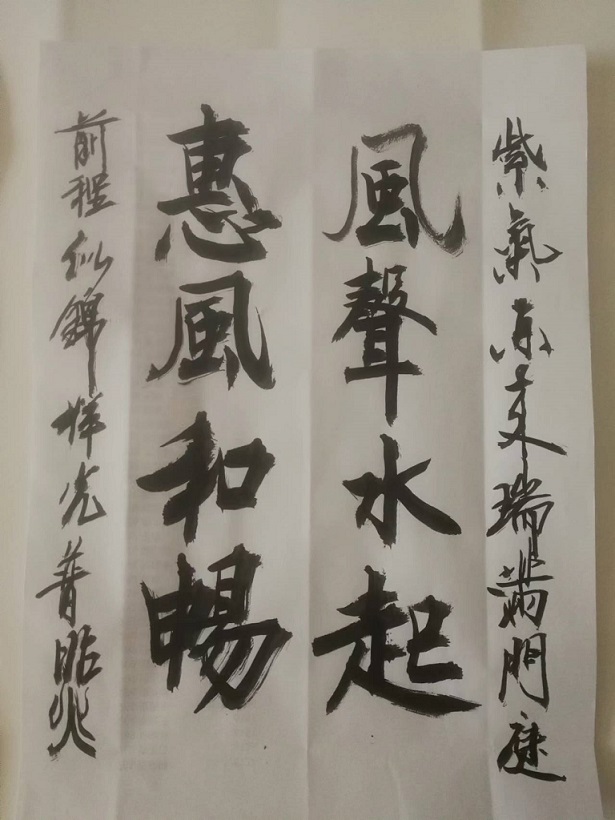 紫氣东来瑞满門庭
風聲水起
惠風和暢
前程似錦祥光普照